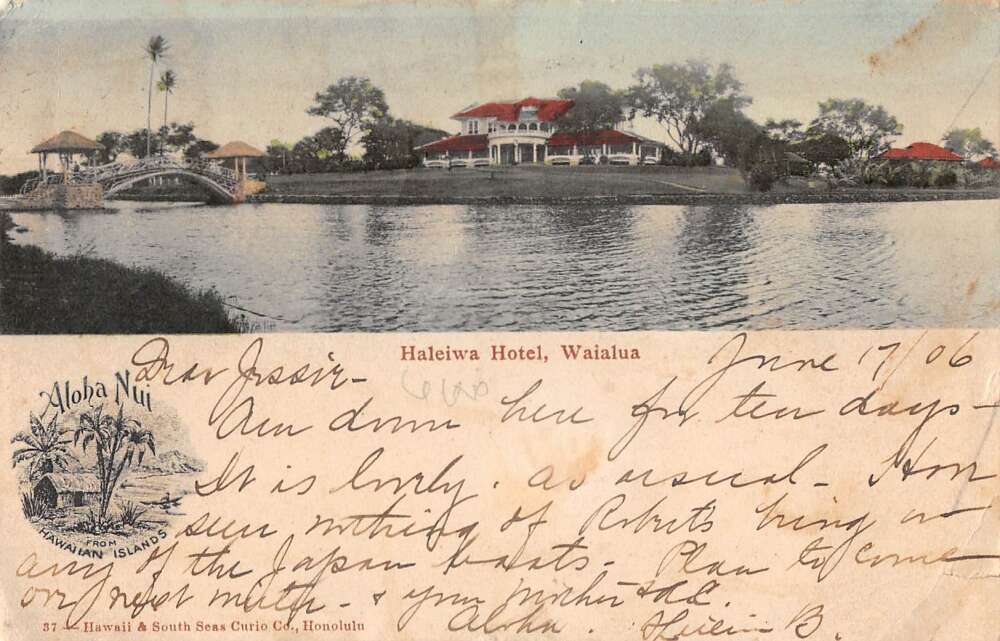 Haleiwa Hotel, Waialua
June 17/06
Dear Jessie-
Aloha Nui
FROM
HAWAIIAN ISLANDS
Am down here for ten days-
It is lovely. as usual - Hav
seen nothing of Robert's being on
any of the Japan boats. Plan to come
over next
& your Mother
Aloha.
B.
37 — Hawaii & South Seas Curio Co., Honolulu